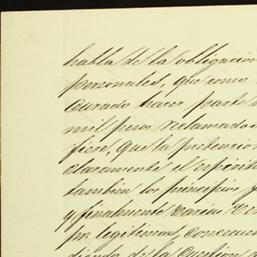 habla de la obligacion
personales, que como
curado hacer parte
mil pesos reclamado
fiere, que la pretencio
claramente el espírit
tambien los principios
y finalmente varias
por legitimas, consecuen
diendo de la cuestion